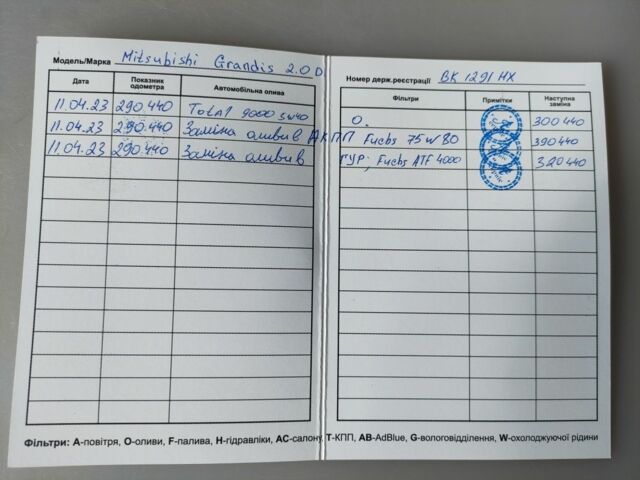 Модель/Марка Mitsubishi Grandis 2.0 D
Дата Показник одометра Автомобільна олива
11.04.23 290 440 Total 9000 5w40
11.04.23 290 440 Заміна оливи в АКПП
11.04.23 290 440 Заміна оливи в
Номер держ.реєстрації ВК 1291 НХ
Фільтри Примітки Наступна заміна
О. 300 440
Fuchs 75w80 390 440
ГУР; Fuchs ATF 4000 320 440
Фільтри: А-повітря, О-оливи, F-палива, Н-гідравліки, АС-салону, Т-КПП, АВ-AdBlue, G-вологовідділення, W-охолоджуючої рідини